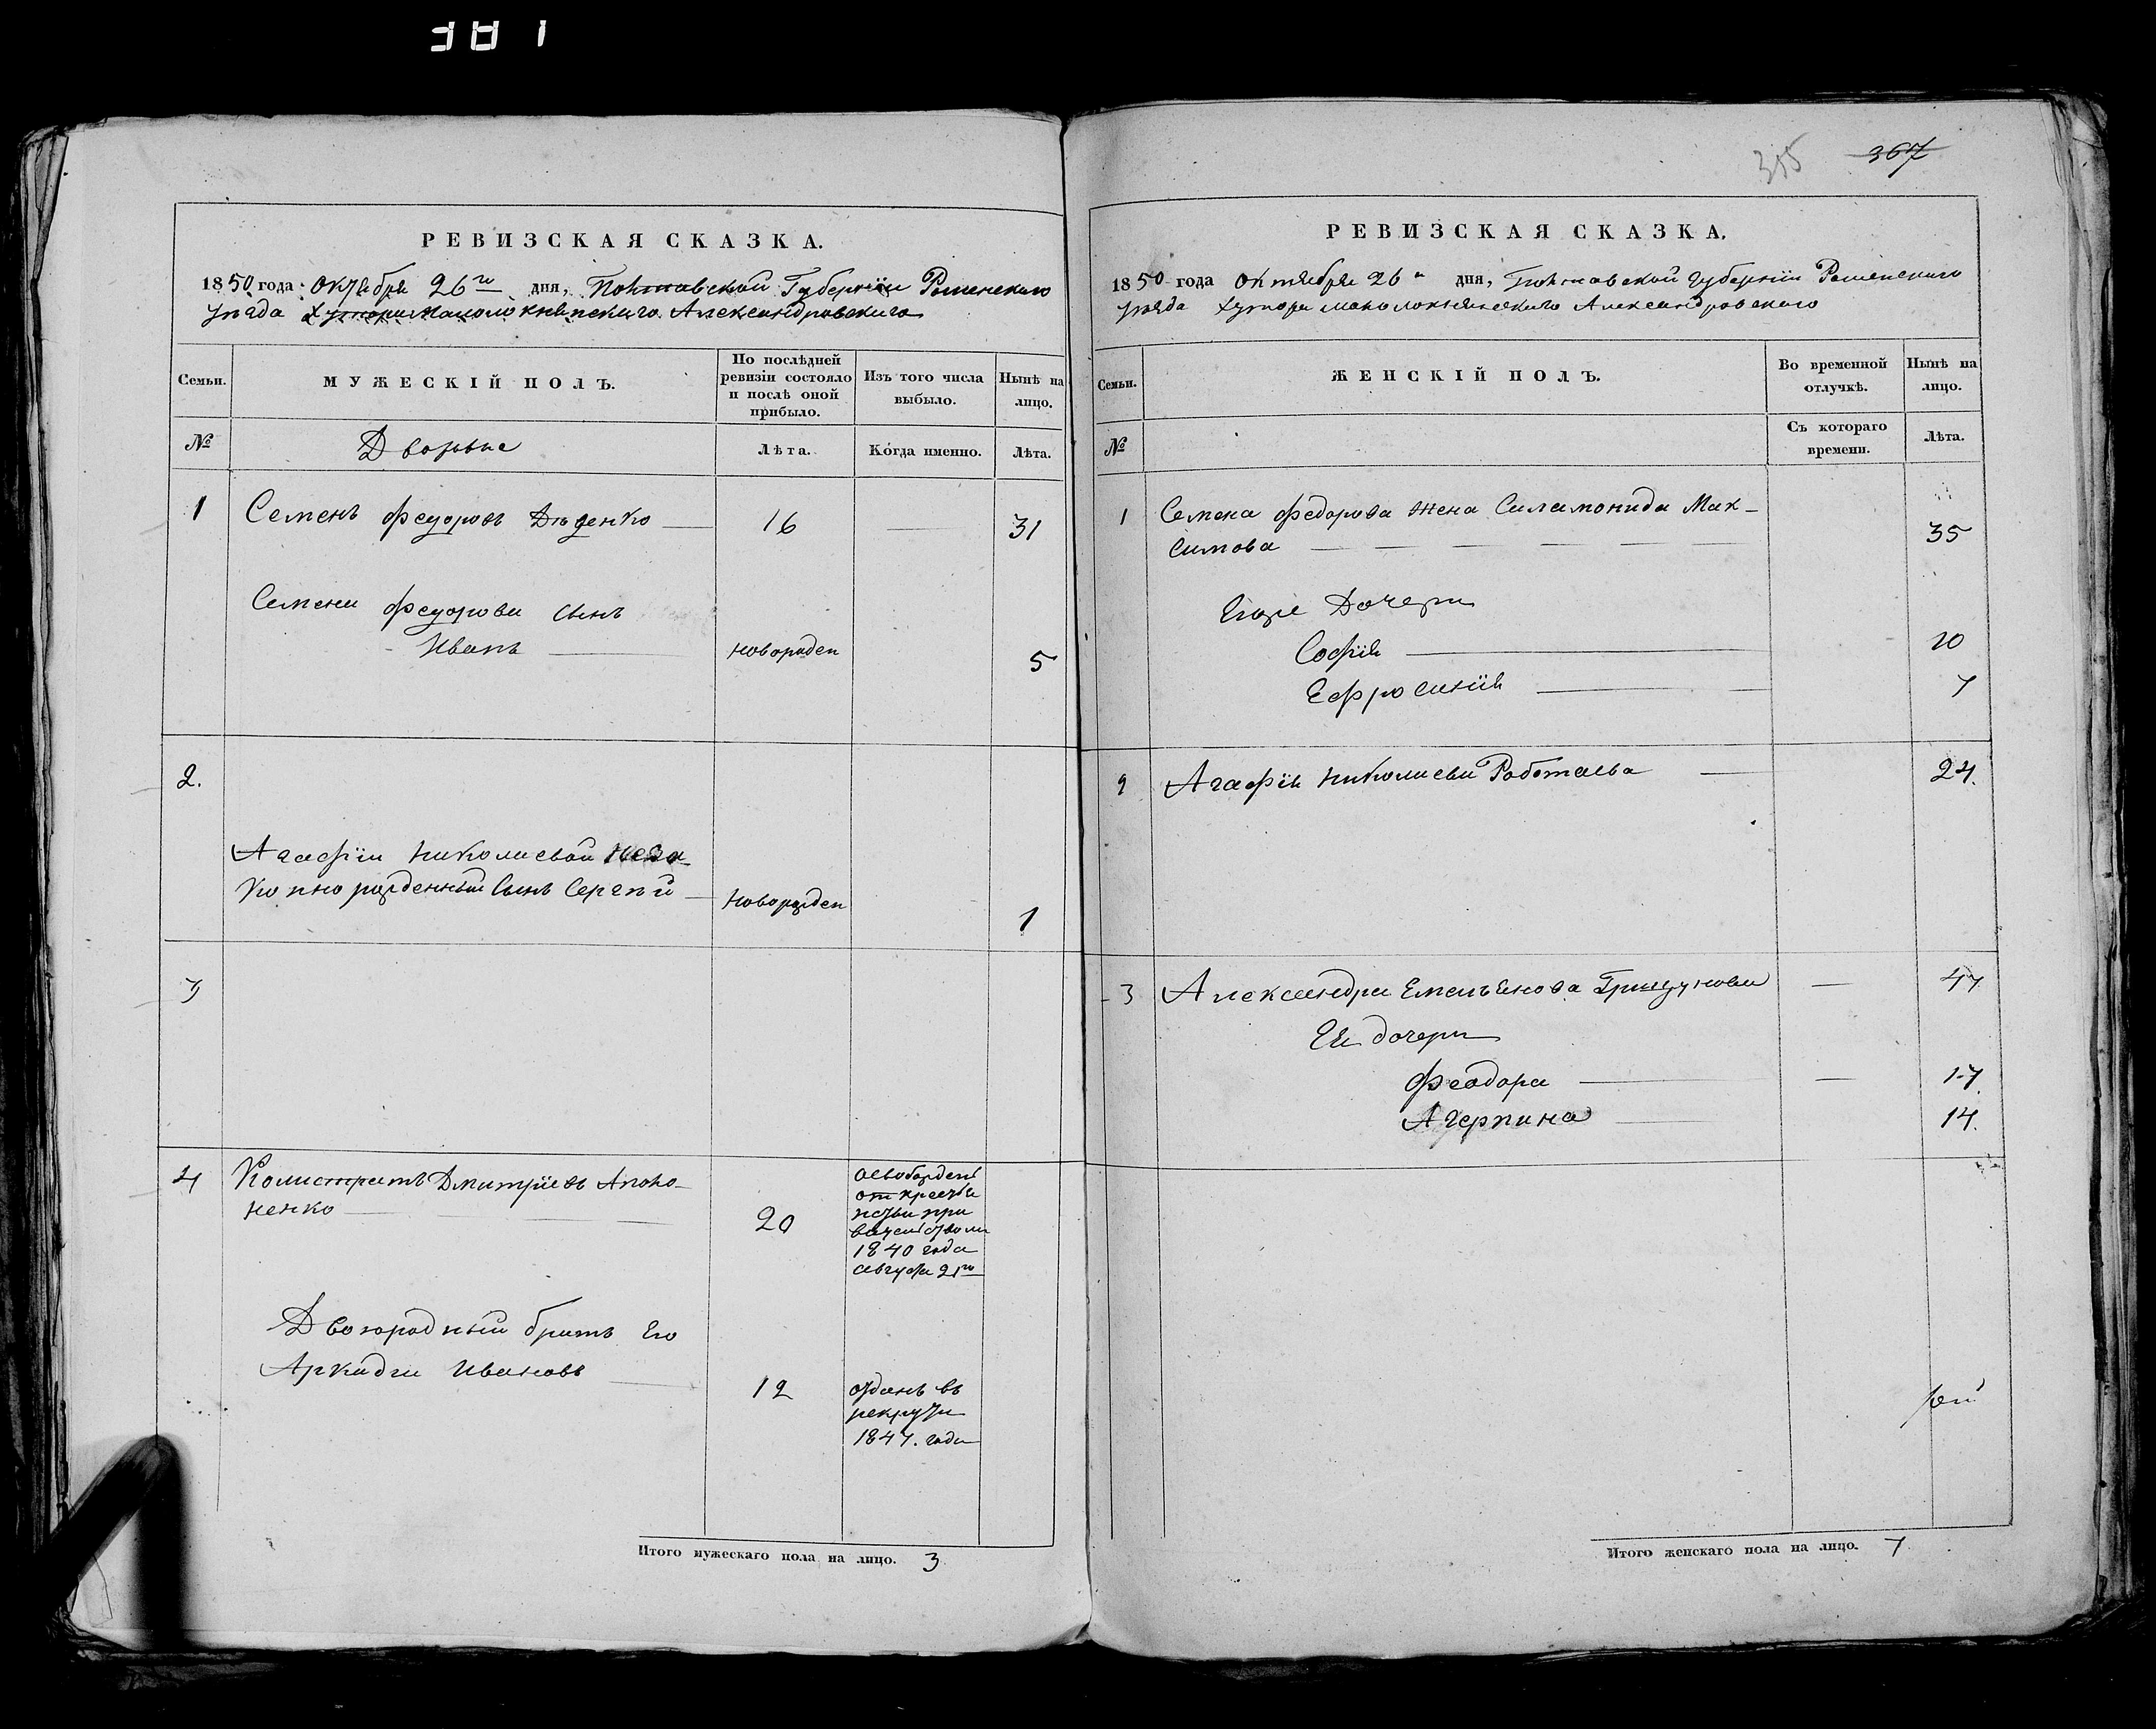 381
РЕВИЗСКАЯ СКАЗКА.
1850 года Октября 26го дня, Полтавской Губерніи Роменскаго
уѣзда Хутора Александровскаго
Семьи.
МУЖЕСКІЙ ПОЛЪ.
По послѣдней ревизіи состояло и послѣ оной прибыло.
Изъ того числа выбыло.
Нынѣ на лицо.
№
Дворовые
Лѣта.
Когда именно.
Лѣта.
1 Семенъ Федоровъ Дѣденко 16 31
Семена Федорова сынъ
Иванъ новорожден 5
2.
Агафіи Николаевой неза-
конно рожденный сынъ Сергѣй новорожден 1
3
4 Калистратъ Дмитріевъ Апоно-
ненко 20
освобожденъ
от крестья
1840 года
августа 21го
Двоюродный братъ Его
Аркадій Ивановъ 12
отданъ въ
рекруты
1847. года
Итого мужескаго пола на лицо. 3
355 367
РЕВИЗСКАЯ СКАЗКА.
1850 года Октября 26 дня, Полтавской губерніи Роменскаго
уѣзда Хутора Александровскаго
Семьи.
ЖЕНСКІЙ ПОЛЪ.
Во временной отлучкѣ.
Нынѣ на лицо.
№
Съ котораго времени.
Лѣта.
1 Семена Федорова жена Саламонида Мак-
симова 35
Егоже Дочери
Софія 10
Ефросинія 7
2 Агафія Николаева Работаева 24.
3 Александра Емельянова 47
Ея дочери
Феодора 17
Агерпина 14.
Итого женскаго пола на лицо. 7